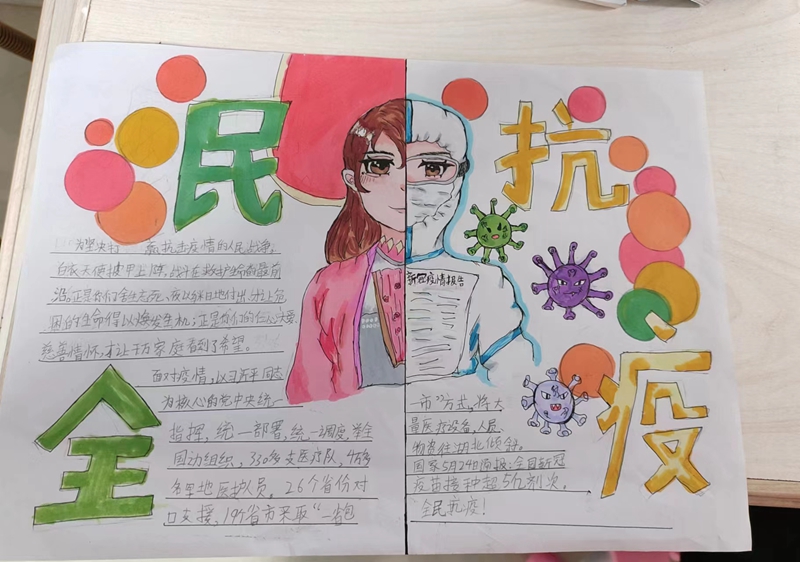 全民抗疫
为坚决打 新抗击疫情的人民战争,
白衣天使披甲上阵,战斗在救护生命的最前
沿。正是你们舍生忘死、夜以继日地付出,才让危
困的生命得以焕发生机;正是你们的仁心大爱、
慈善情怀,才让千万家庭看到了希望。
面对疫情,以习近平同志
为核心的党中央统一
指挥,统一部署,统一调度,举全
国力组织,330多支医疗队,4万多
名军地医护人员。26个省份对
口支援,19个省市采取“一省包
新冠疫情报告
一市”方式,将大
量医疗设备,人员,
物资往湖北倾斜。
国家5月24日简报:全国新冠
疫苗接种超5亿剂次。
全民抗疫!